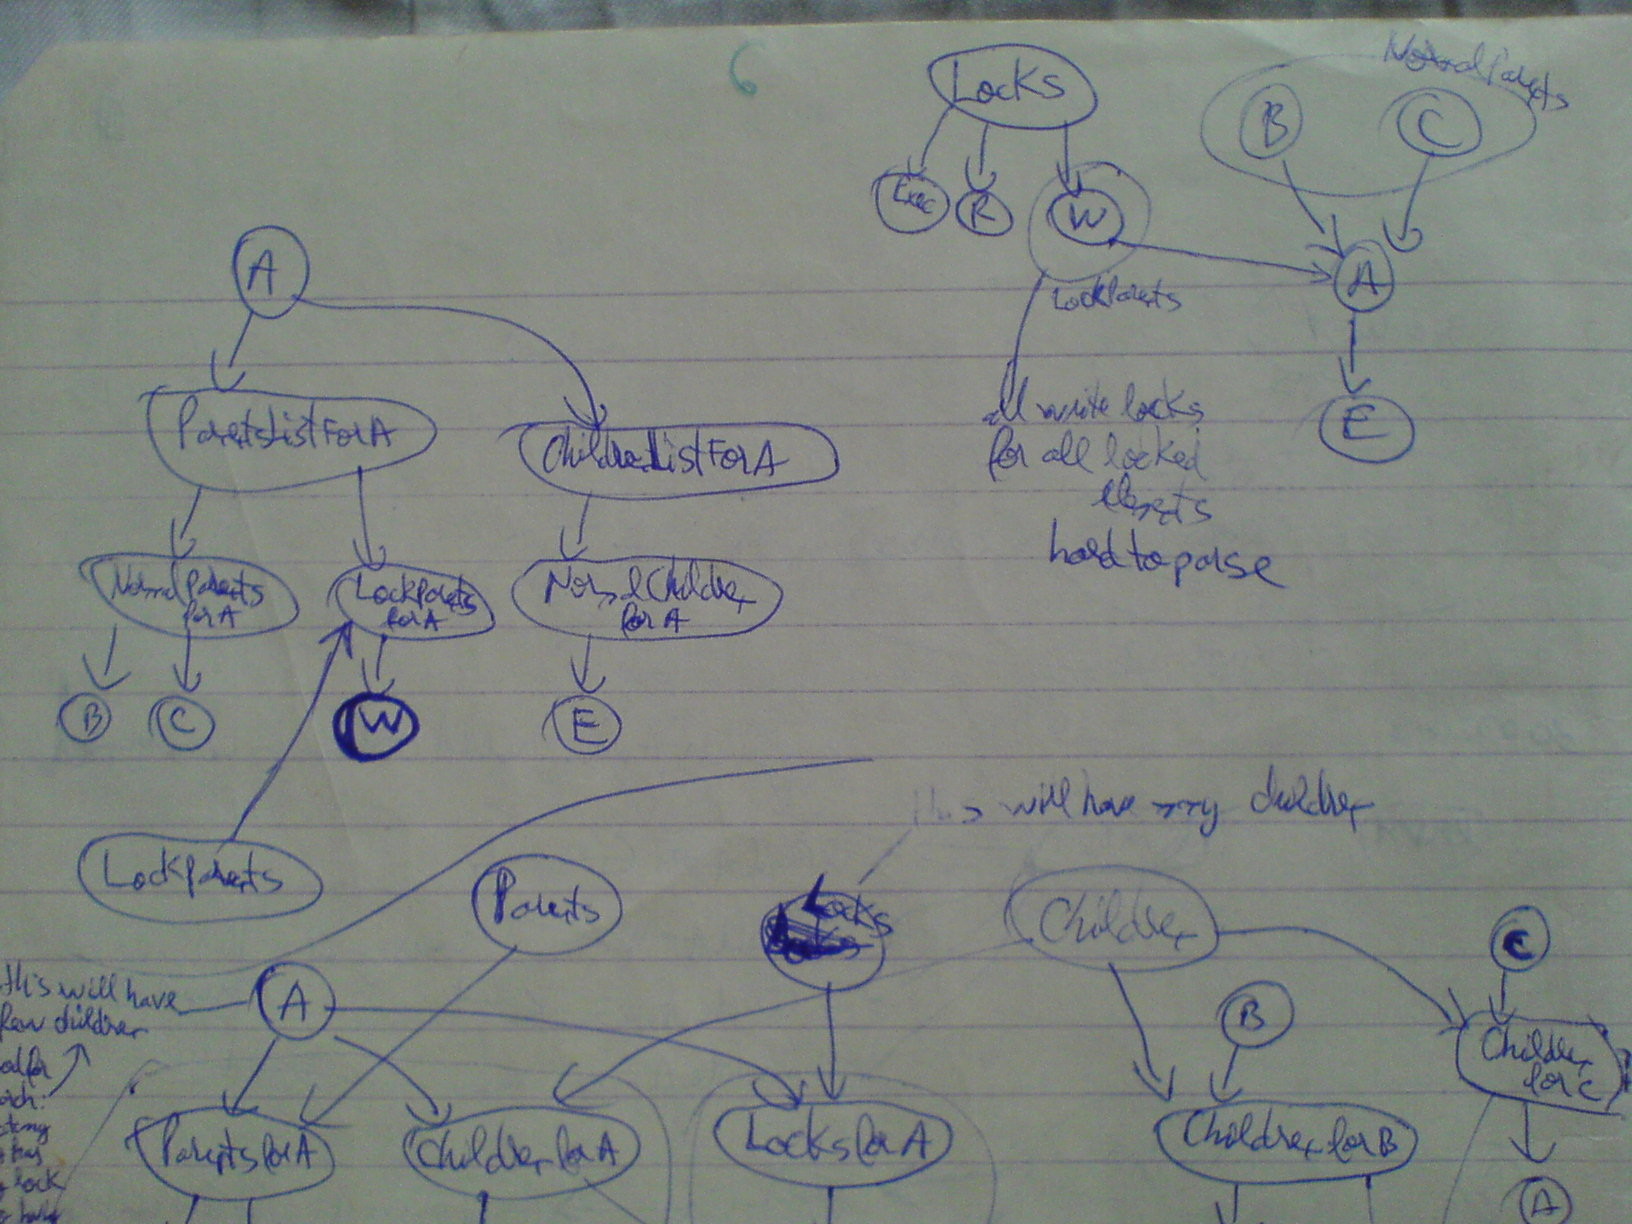 6
Locks
Normal Parents
B
C
Exec
R
W
A
LockParents
E
all write locks
for all locked
elements
hard to parse
A
ParentsListForA
ChildrenListForA
NormalParents
for A
LockParents
for A
NormalChildren
for A
B
C
W
E
LockParents
this will have many children
Parents
Locks
Children
C
this will have
few children
A
B
Children
for C
ParentsforA
Children for A
Locks for A
Children for B
A
lock